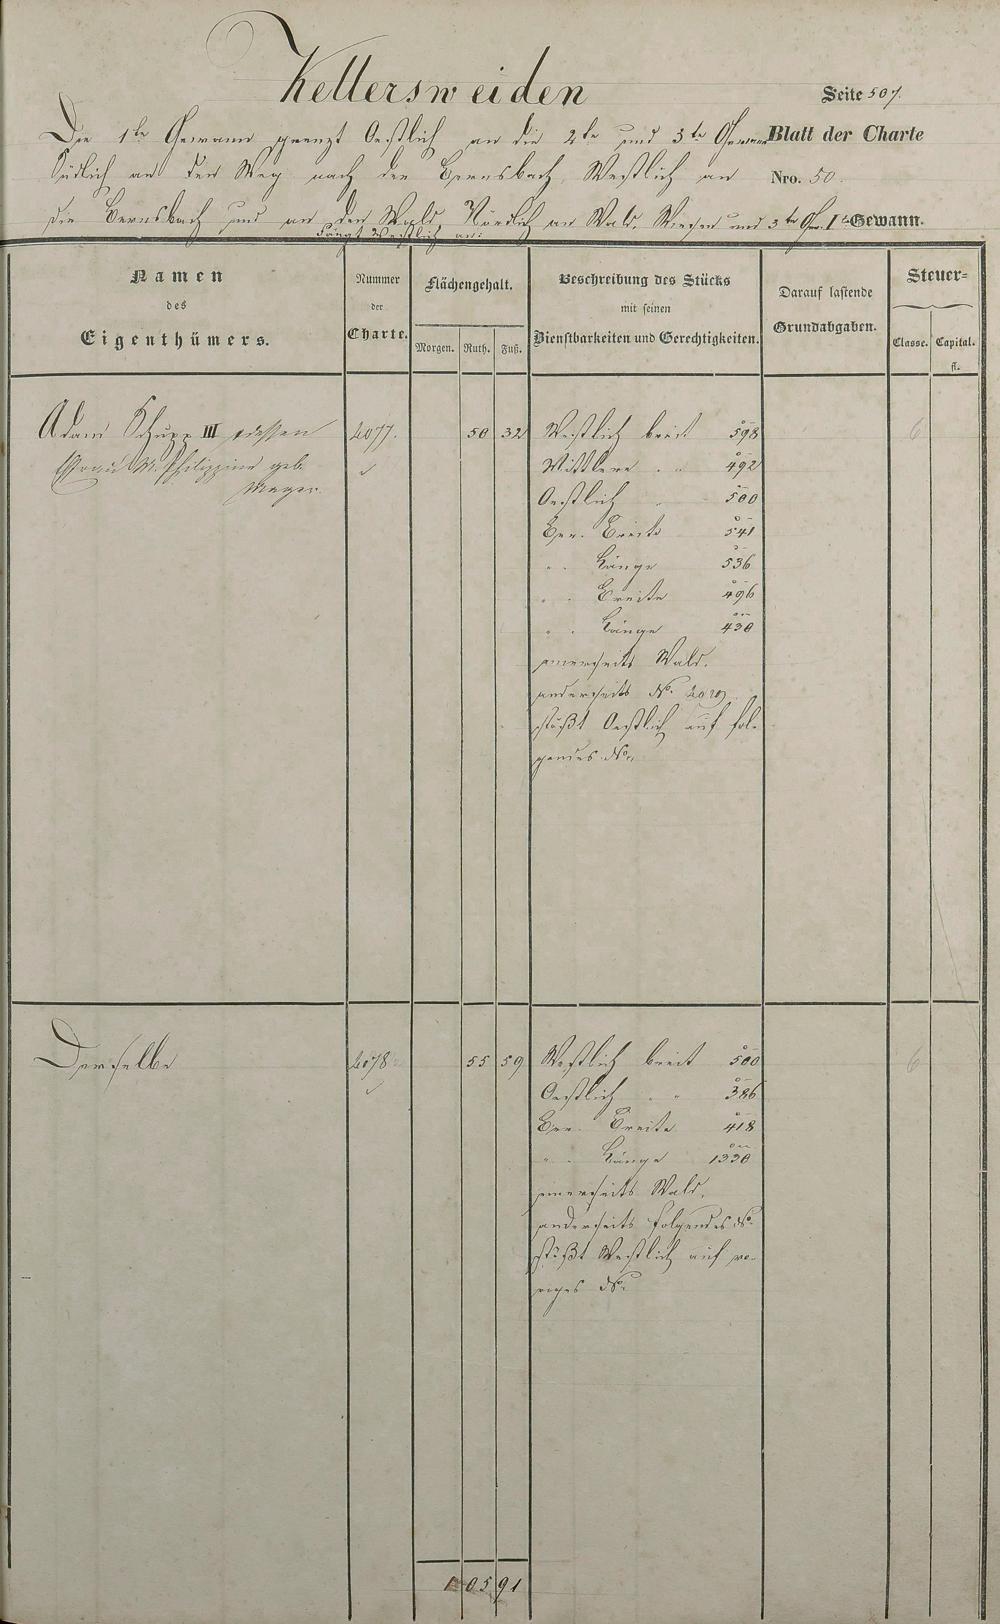 Kellersweiden
Seite 507.
Die 1te Gewann grenzt Oestlich an die 2te und 3te Gewann
Blatt der Charte
Südlich an den Weg nach der Bernsbach, Westlich an
Nro. 50.
die Bernsbach und an den Wald, Nördlich an Wald, Wiesen und 3te Gew. 1te Gewann.
Fängt Westlich an:
Namen
des
Eigenthümers.
Nummer
der
Charte.
Flächengehalt.
Morgen. Ruth. Fuß.
Beschreibung des Stücks
mit seinen
Dienstbarkeiten und Gerechtigkeiten.
Darauf lastende
Grundabgaben.
Steuer=
Classe. Capital.
fl.
Adam Schupp III dessen 4077. 50 32 Westlich breit 598 6
Ehefrau M. Philippine geb. Mittlere " " 492
Mayer. Oestlich " 500
Ger. Breite 541
" " Länge 536
" " Breite 496
" " Länge 430
einerseits Wald.
anderseits No.
stößt Oestlich auf fol-
gendes No.
Derselbe 4078. 55 59 Westlich breit 500 6
Oestlich " " 386
Ger. Breite 418
" " Länge 1330
einerseits Wald,
anderseits folgendes No.
stößt Westlich auf vo-
riges No.
1 05 91